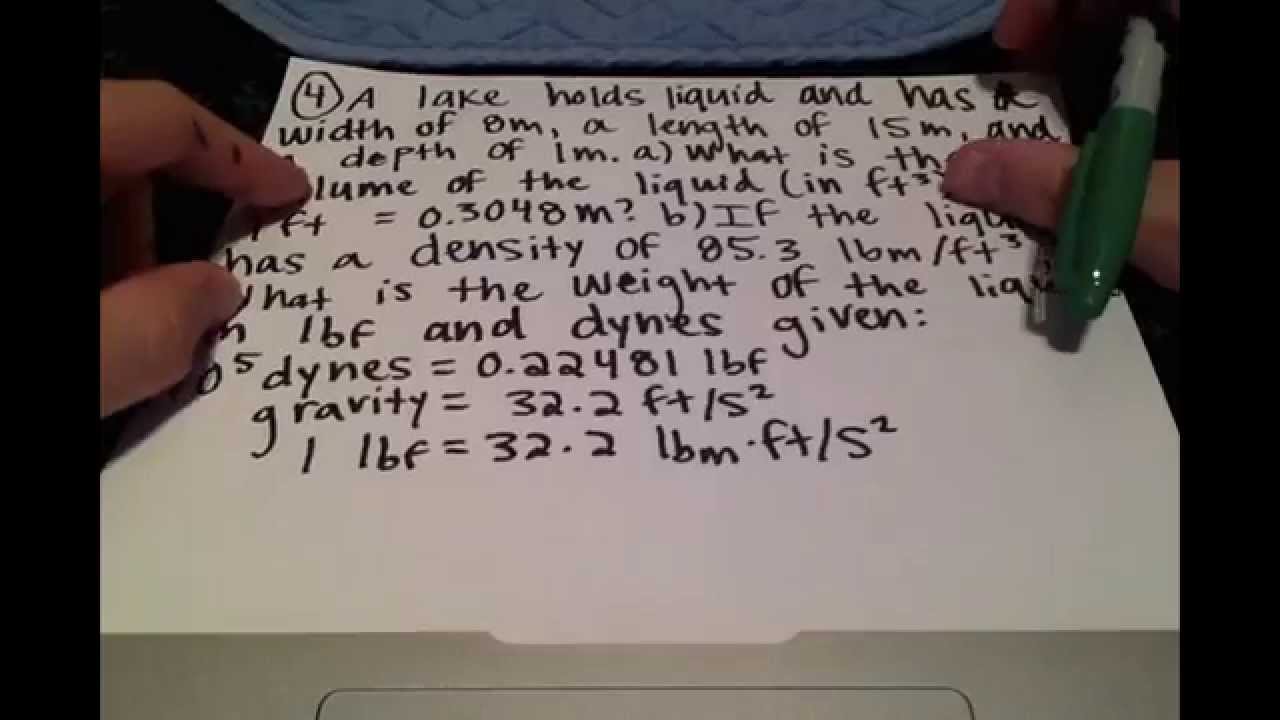 ④ A lake holds liquid and has a
width of 8m, a length of 15m, and
depth of 1m. a) What is the
lume of the liquid (in ft³)
1 ft = 0.3048m? b) If the liqu
has a density of 85.3 lbm/ft³
What is the weight of the liqu
n lbf and dynes given:
0⁵ dynes = 0.22481 lbf
gravity = 32.2 ft/s²
1 lbf = 32.2 lbm·ft/s²